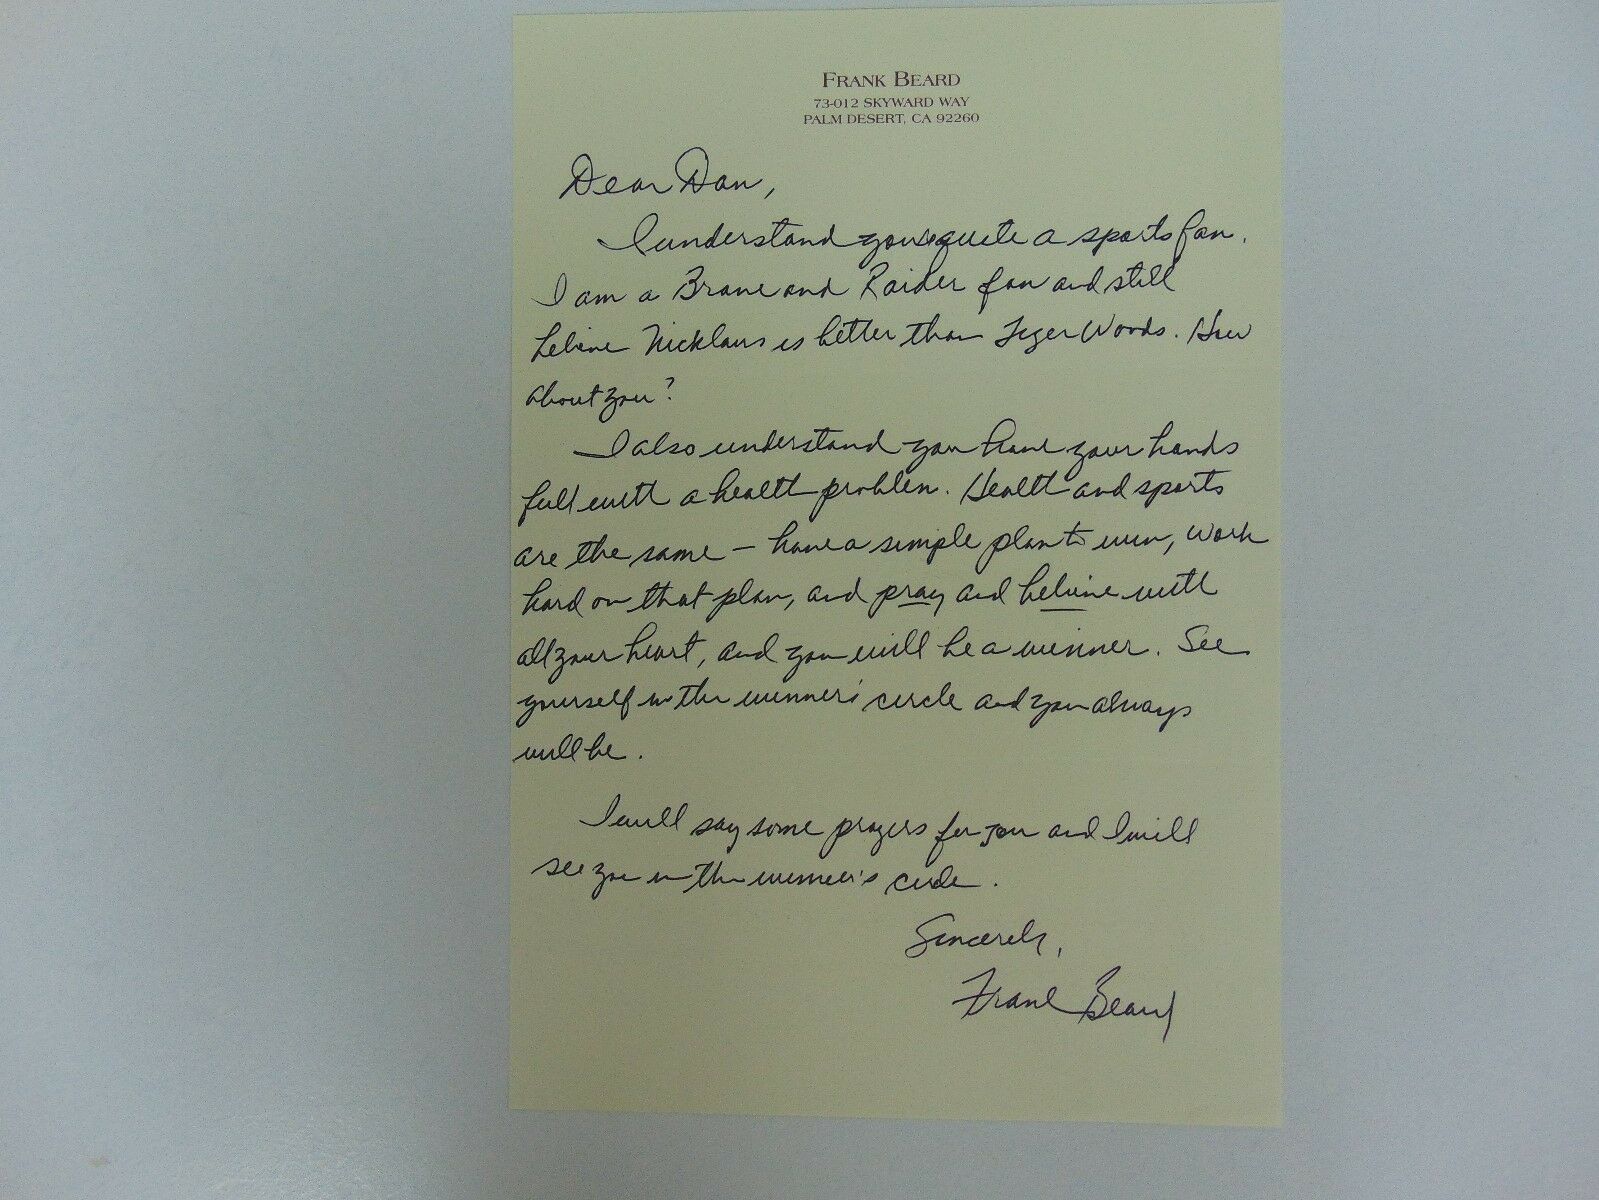 FRANK BEARD
73-012 SKYWARD WAY
PALM DESERT, CA 92260
Dear Dan,
I understand you're quite a sports fan.
I am a Brave and Raider fan and still
believe Nicklaus is better than Tiger Woods. How
about you?
I also understand you have your hands
full with a health problem. Health and sports
are the same — have a simple plan to win, work
hard on that plan, and pray and believe with
all your heart, and you will be a winner. See
yourself in the winner's circle and you always
will be.
I will say some prayers for you and I will
see you in the winner's circle.
Sincerely,
Frank Beard